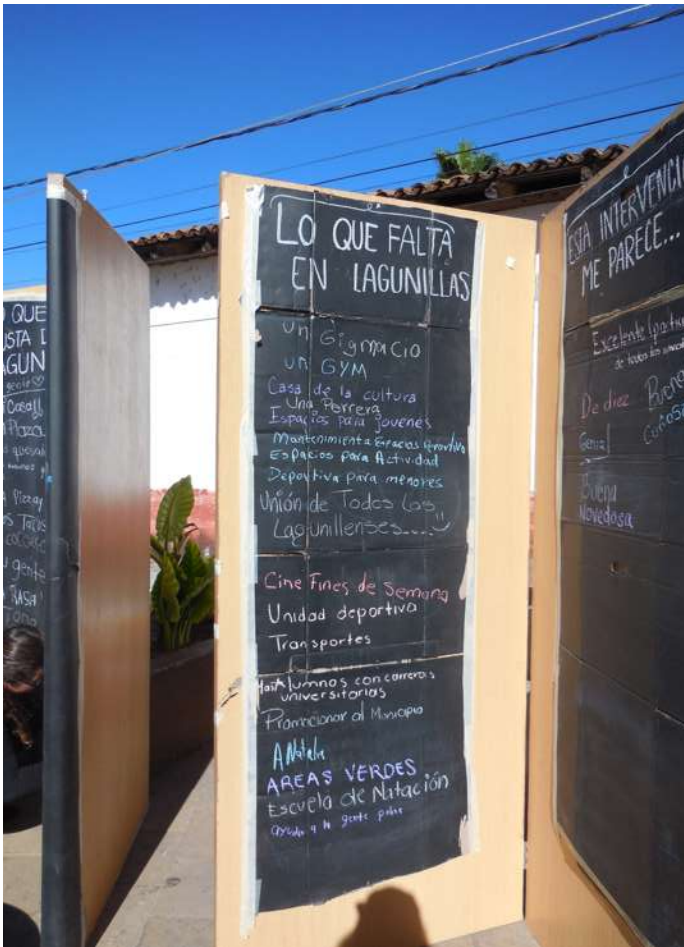 O QUE
USTA D
LAGUN
gente
Casa
Plaza
Plaza y
Tacos
gente
LO QUE FALTA
EN LAGUNILLAS
Un Gigmacio
UN GYM
Casa de la cultura
Una Perrera
Espacios para jovenes
Mantenimiento Espacios
Espacios para Actividad
Deportiva para menores
Unión de Todos los
Lagunillenses....
Cine Fines de Semana
Unidad deportiva
Transportes
Alumnos con carreras
universitarias
Promocionar al Municipio
A Natalia
AREAS VERDES
Escuela de Natación
ayuda a la gente pobre
ESTA INTERVENCIÓ
ME PARECE...
Excelente
de todos los
De diez
Buena
Genial
Curiosa
Buena
Novedosa